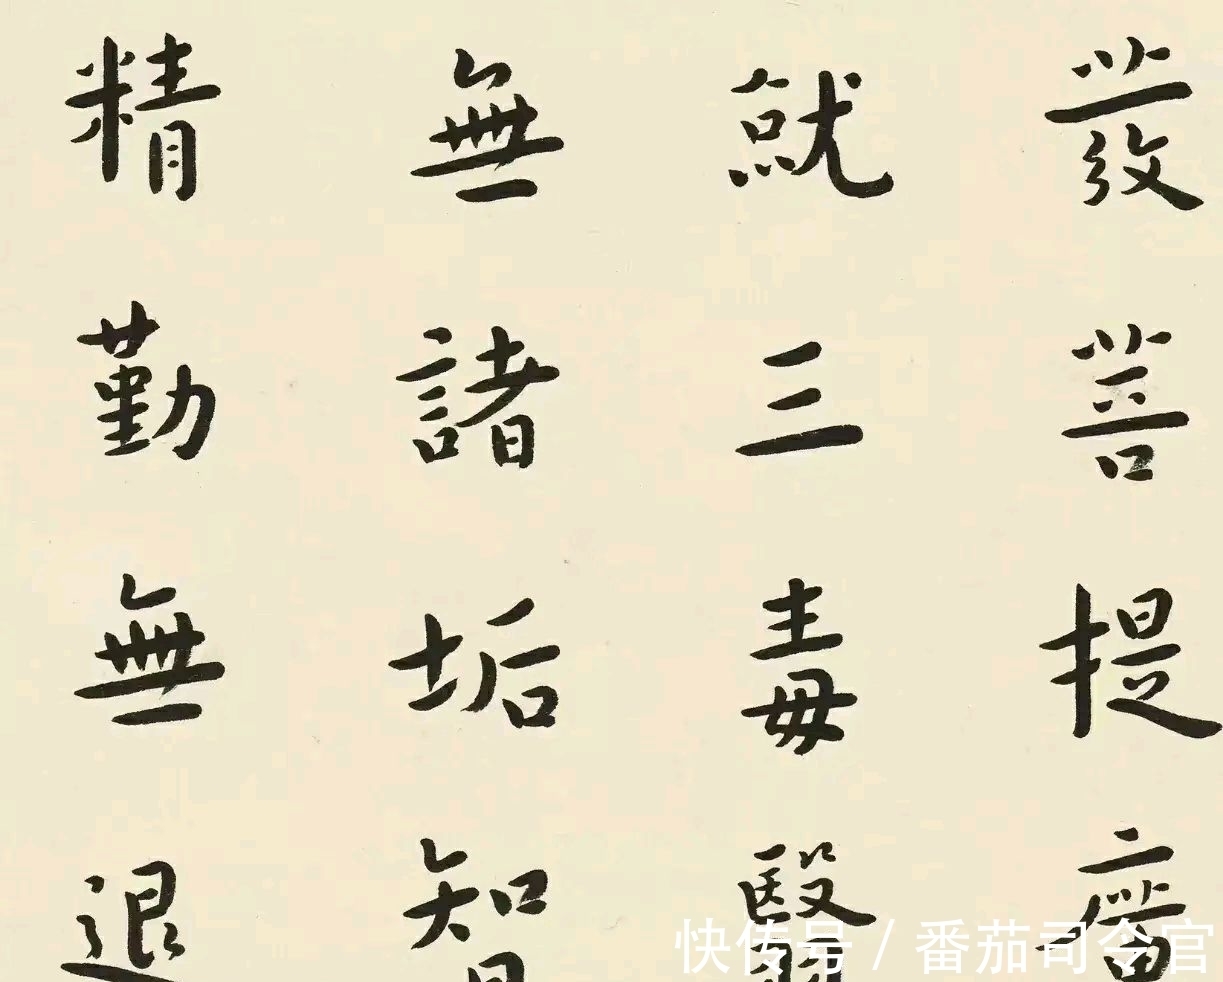 發菩提廣
就三毒翳
無諸垢智
精勤無退
快传号 / 番茄司令官